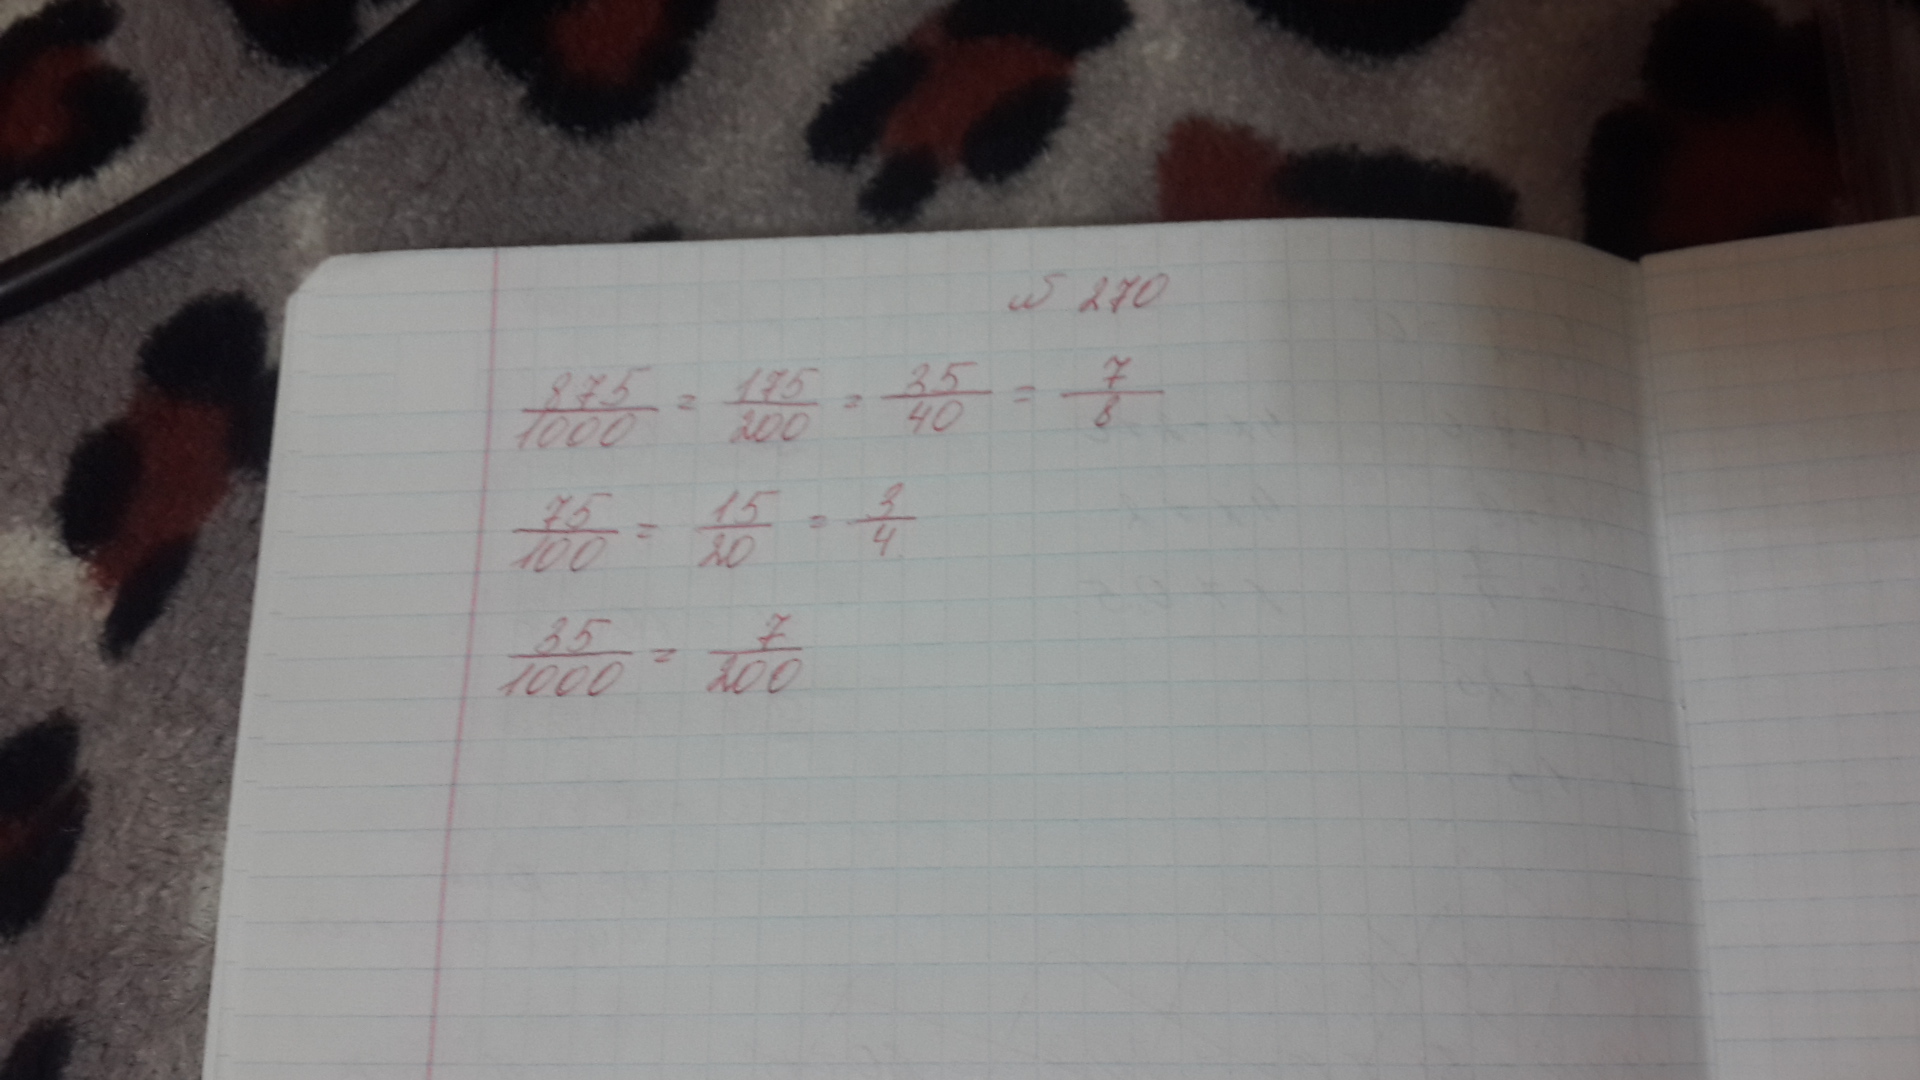 № 270
875/1000 = 175/200 = 35/40 = 7/8
75/100 = 15/20 = 3/4
35/1000 = 7/200